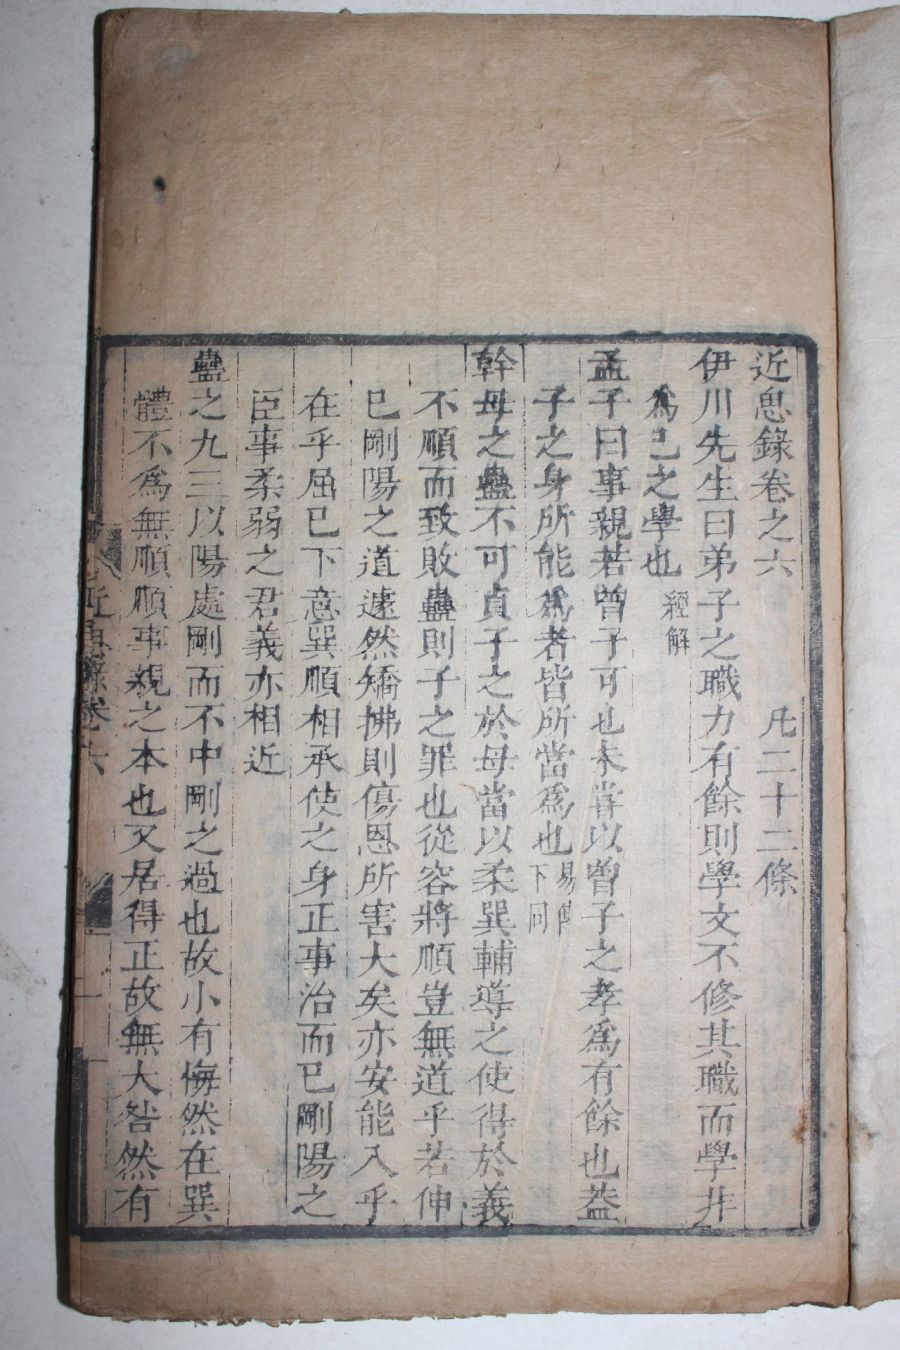 近思錄卷之六　凡二十二條
伊川先生曰弟子之職力有餘則學文不修其職而學非
爲己之學也經解
孟子曰事親若曾子可也未嘗以曾子之孝爲有餘也蓋
子之身所能爲者皆所當爲也易傳下同
幹母之蠱不可貞子之於母當以柔巽輔導之使得於義
不順而致敗蠱則子之罪也從容將順豈無道乎若伸
己剛陽之道遽然矯拂則傷恩所害大矣亦安能入乎
在乎屈己下意巽順相承使之身正事治而已剛陽之
臣事柔弱之君義亦相近
蠱之九三以陽處剛而不中剛之過也故小有悔然在巽
體不爲無順順事親之本也又居得正故無大咎然有
近思錄卷六
一